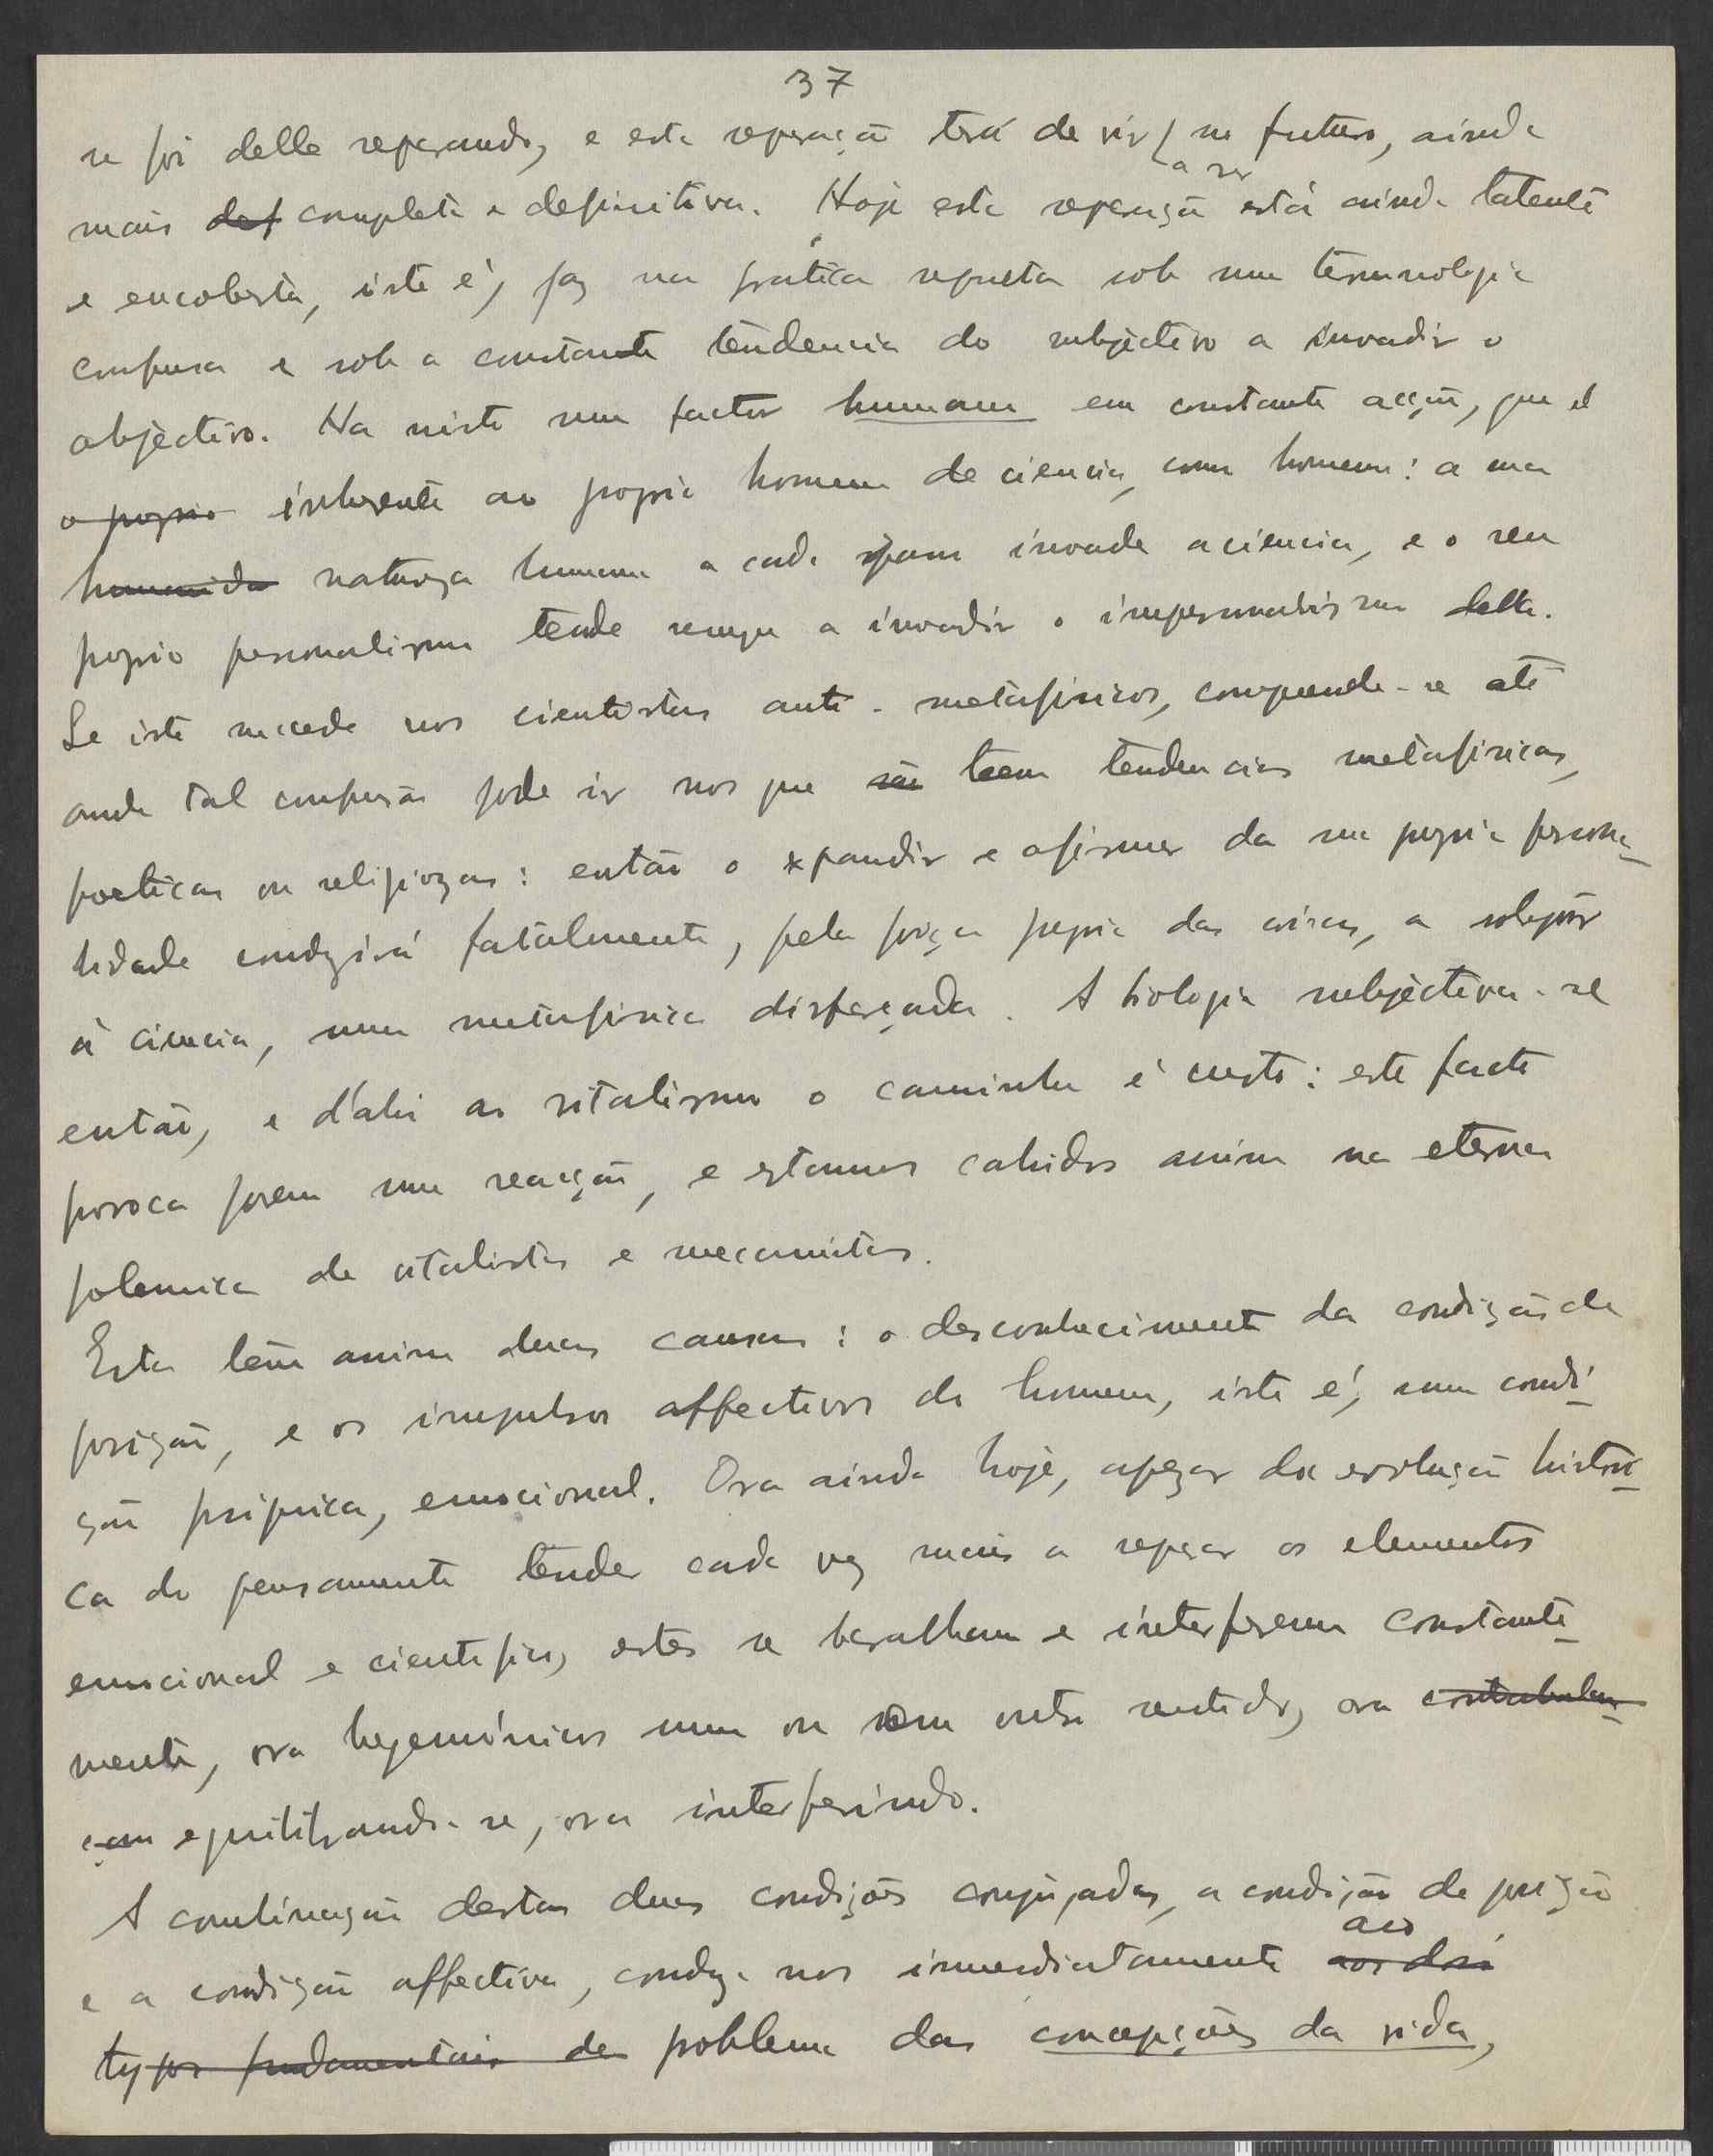 37
se foi delle separando, e esta separação terá de vir a ser no futuro, ainda
mais def completa e definitiva. Hoje esta separação está ainda latente
e encoberta, isto é, faz na pratica sob uma terminologia
confusa e sob a constante tendencia do subjectivo a invadir o
objectivo. Ha nisto um factor humano em constante acção, que é
o proprio inherente ao proprio homem de ciencia, como homem: a sua
humanida natureza humana a cada passo invade a ciencia, e o seu
proprio personalismo tende sempre a invadir o impersonalismo della.
Se isto succede nos cientistas anti-metafisicos, comprende-se até
onde tal confusão pode ir nos que são teem tendencias metafisicas,
poeticas ou religiozas: então o expandir e afirmar da sua propria persona-
lidade conduzirá fatalmente, pela força propria das coisas, a sobrepôr
á ciencia, uma metafisica disfarçada. A biologia subjectiva-se
então, e d'ahi ao vitalismo o caminho é curto: este facto
provoca porem uma reacção, e estamos cahidos assim na eterna
polemica de vitalistas e mecanistas.
Esta tem assim duas causas: o desconhecimento da condição de
posição, e os impulsos affectivos do homem, isto é, uma condi-
ção psiquica, emocional. Ora ainda hoje, apezar da evolução histori-
ca do pensamento tender cada vez mais a separar os elementos
emocional e cientifico, estes se baralham e interferem constante-
mente, ora hegemónicos num ou nem outro sentido, ora contrabalan-
çam equilibrando-se, ora interferindo.
A combinação destas duas condições conjugadas, a condição de posição
e a condição affectiva, conduz-nos immediatamente aos dois ao
typos fundamentais de problema das concepções da vida,